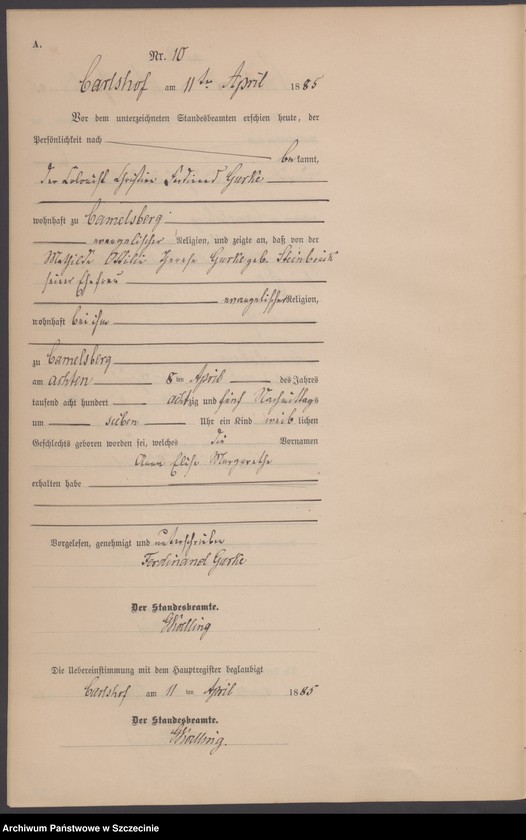 A.
Nr. 10
Carlshof am 11ten April 1885
Vor dem unterzeichneten Standesbeamten erschien heute, der
Persönlichkeit nach
bekannt,
der Kolonist Christian Ferdinand Gurke
wohnhaft zu Camelsberg
evangelischer Religion, und zeigte an, daß von der
Mathilde Ottilie Therese Gurke geb. Steinbrück
seiner Ehefrau
evangelischer Religion,
wohnhaft bei ihm
zu Camelsberg
am achten 8 ten April des Jahres
tausend acht hundert achtzig und fünf Nachmittags
um sieben Uhr ein Kind weiblichen
Geschlechts geboren worden sei, welches die Vornamen
Anna Elise Margarethe
erhalten habe
Vorgelesen, genehmigt und unterschrieben
Ferdinand Gurke
Der Standesbeamte.
Die Uebereinstimmung mit dem Hauptregister beglaubigt
Carlshof am 11 ten April 1885
Der Standesbeamte.
Archiwum Państwowe w Szczecinie